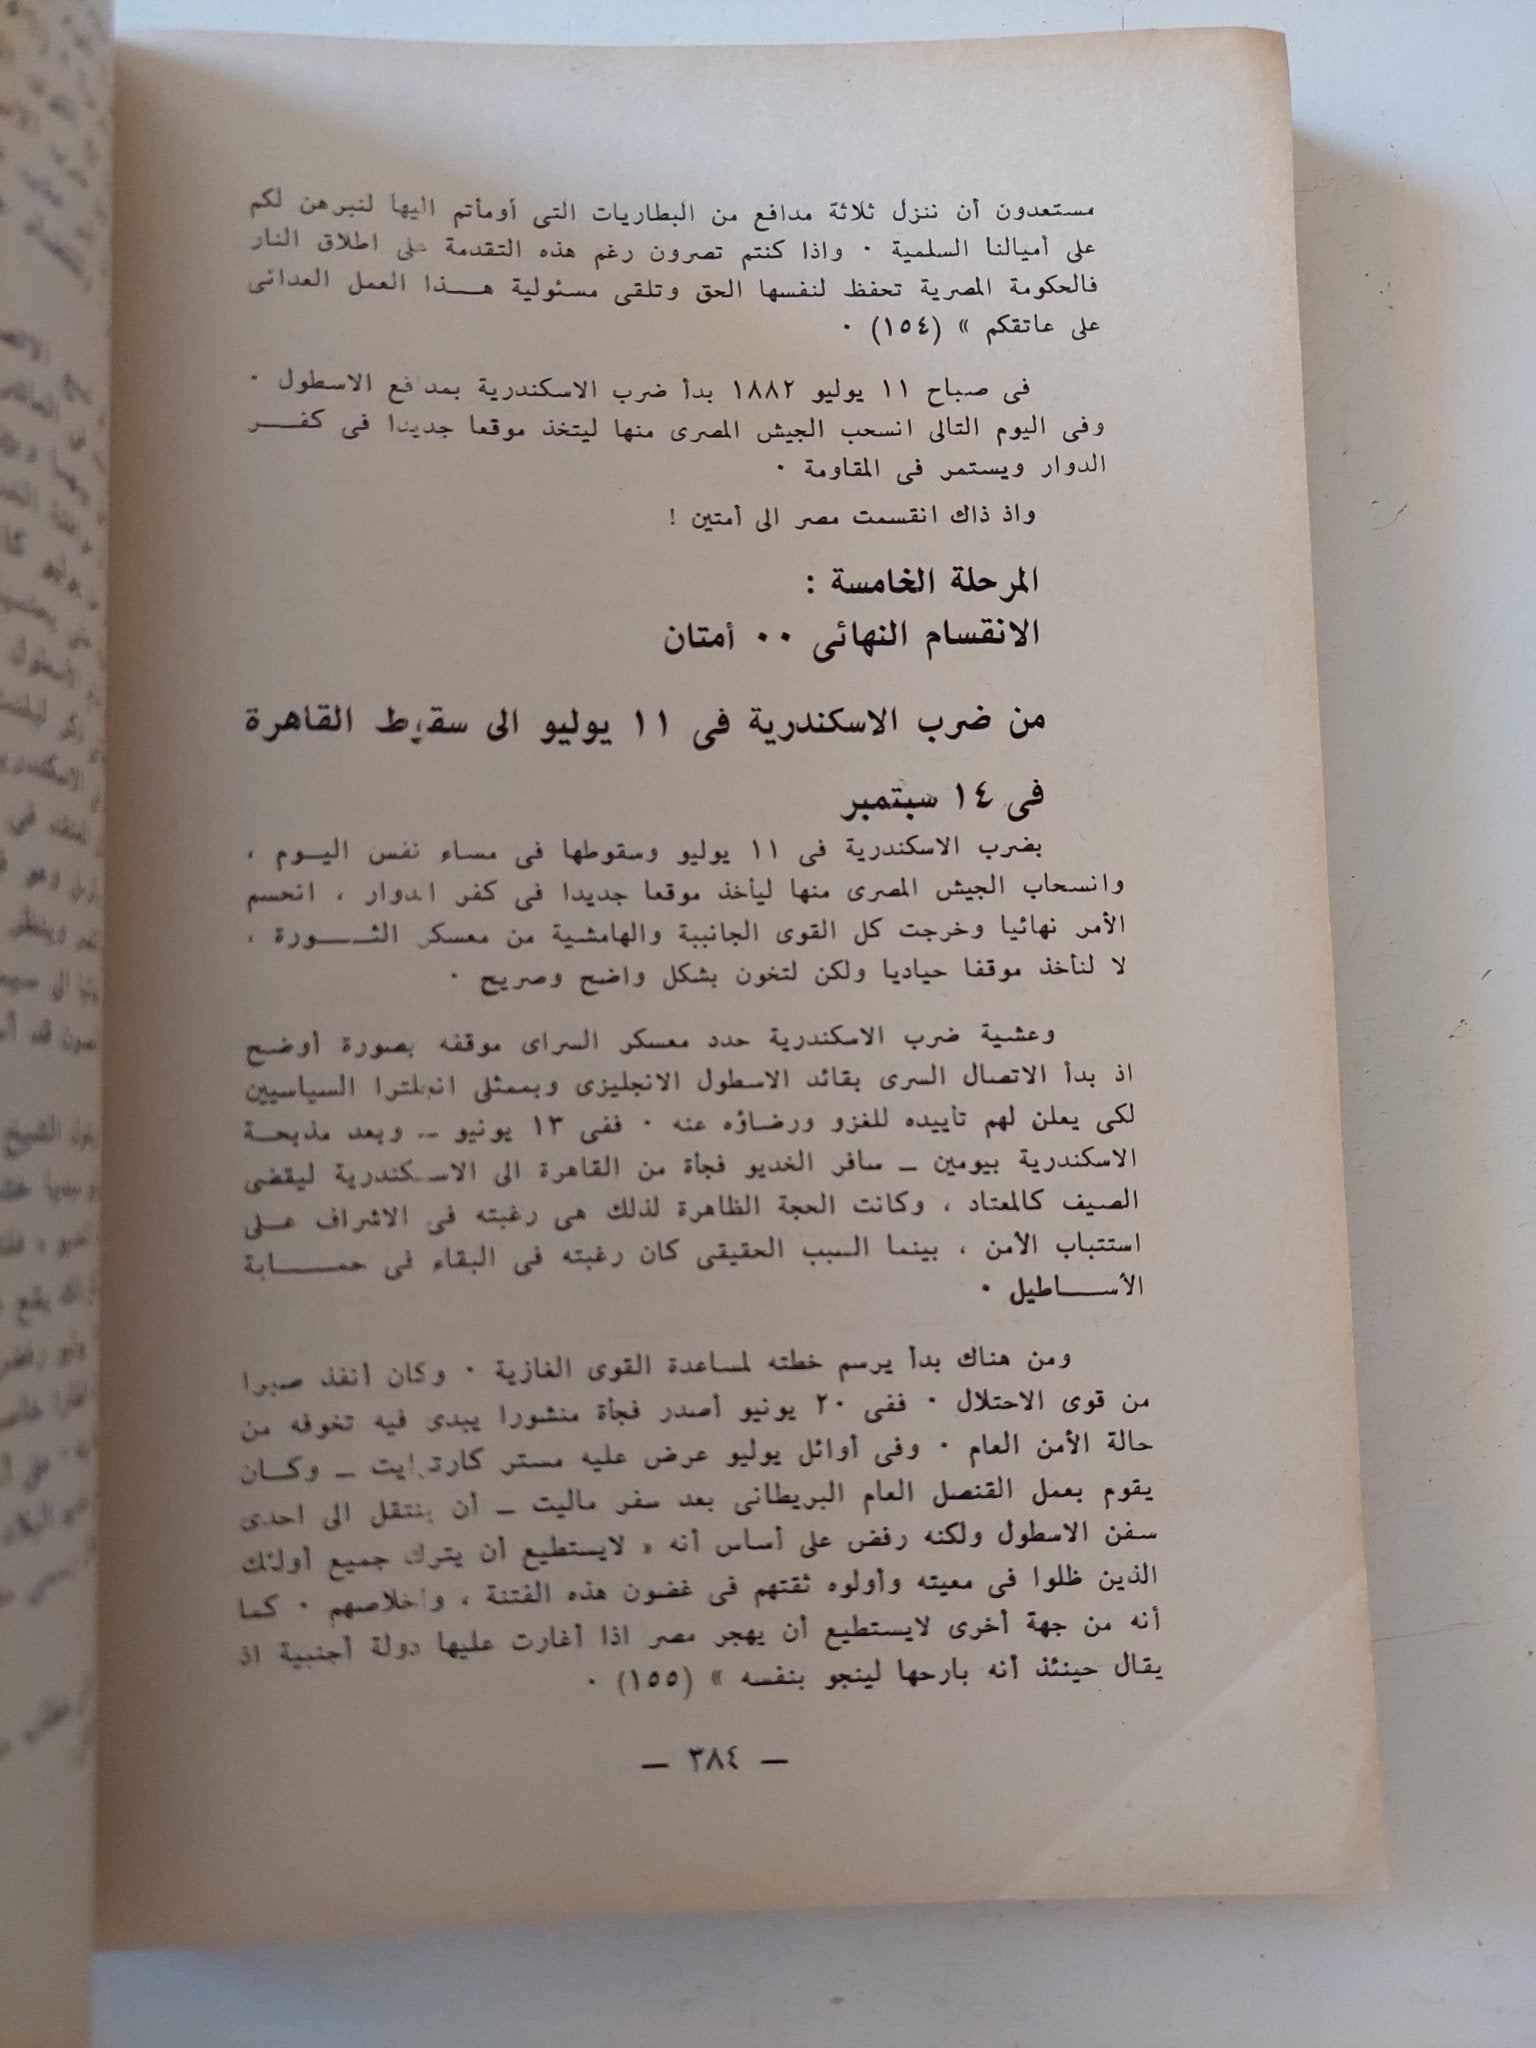 مستعدون أن ننزل ثلاثة مدافع من البطاريات التى أومأتم اليها لنبرهن لكم
على أميالنا السلمية ٠ واذا كنتم تصرون رغم هذه التقدمة على اطلاق النار
فالحكومة المصرية تحفظ لنفسها الحق وتلقى مسئولية هـــذا العمل العدائى
على عاتقكم » (١٥٤) ٠
فى صباح ١١ يوليو ١٨٨٢ بدأ ضرب الاسكندرية بمدافع الاسطول ٠
وفى اليوم التالى انسحب الجيش المصرى منها ليتخذ موقعا جديدا فى كفـــر
الدوار ويستمر فى المقاومة ٠
واذ ذاك انقسمت مصر الى أمتين !
المرحلة الخامسة :
الانقسام النهائى ٠٠ أمتان
من ضرب الاسكندرية فى ١١ يوليو الى سقوط القاهرة
فى ١٤ سبتمبر
بضرب الاسكندرية فى ١١ يوليو وسقوطها فى مساء نفس اليـوم ،
وانسحاب الجيش المصرى منها ليأخذ موقعا جديدا فى كفر الدوار ، انحسم
الأمر نهائيا وخرجت كل القوى الجانبية والهامشية من معسكر الثــورة ،
لا لنأخذ موقفا حياديا ولكن لتخون بشكل واضح وصريح ٠
وعشية ضرب الاسكندرية حدد معسكر السراى موقفه بصورة أوضح
اذ بدأ الاتصال السرى بقائد الاسطول الانجليزى وبممثلى انجلترا السياسيين
لكى يعلن لهم تأييده للغزو ورضاؤه عنه ٠ ففى ١٣ يونيو ــ وبعد مذبحــة
الاسكندرية بيومين ــ سافر الخديو فجأة من القاهرة الى الاسكندرية ليقضى
الصيف كالمعتاد ، وكانت الحجة الظاهرة لذلك هى رغبته فى الاشراف علـى
استتباب الأمن ، بينما السبب الحقيقى كان رغبته فى البقاء فى حمـــاية
الأســاطيل ٠
ومن هناك بدأ يرسم خطته لمساعدة القوى الغازية ٠ وكان أنفذ صبرا
من قوى الاحتلال ٠ ففى ٢٠ يونيو أصدر فجأة منشورا يبدى فيه تخوفه من
حالة الأمن العام ٠ وفى أوائل يوليو عرض عليه مستر كارترايت ــ وكـان
يقوم بعمل القنصل العام البريطانى بعد سفر ماليت ــ أن ينتقل الى احدى
سفن الاسطول ولكنه رفض على أساس أنه « لايستطيع أن يترك جميع أولئك
الذين ظلوا فى معيته وأولوه ثقتهم فى غضون هذه الفتنة ، واخلاصهم ٠ كما
أنه من جهة أخرى لايستطيع أن يهجر مصر اذا أغارت عليها دولة أجنبية اذ
يقال حينئذ أنه بارحها لينجو بنفسه » (١٥٥) ٠
ــ ٣٨٤ ــ